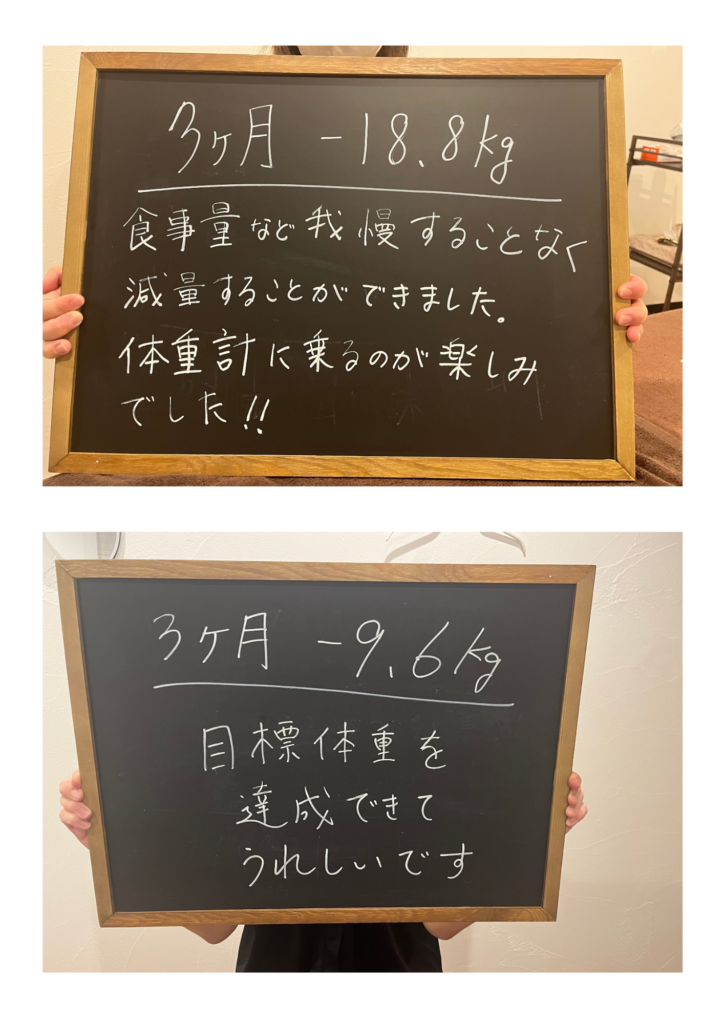 3ヶ月 -18.8kg
食事量など我慢することなく
減量することができました。
体重計に乗るのが楽しみ
でした!!
3ヶ月 -9.6kg
目標体重を
達成できて
うれしいです